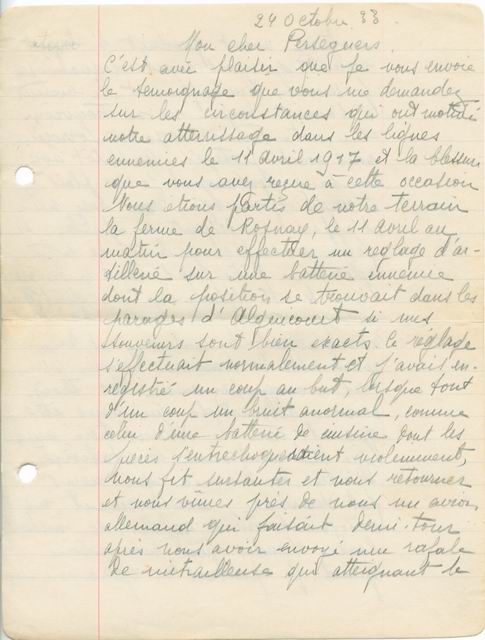 24 Octobre 33.
Mon cher Perseyers.
C'est avec plaisir que je vous envoie
le témoignage que vous me demandez
sur les circonstances qui ont motivé
notre atterrissage dans les lignes
ennemies le 11 avril 1917 et la blessure
que vous avez reçue à cette occasion
Nous étions partis de notre terrain
la ferme de Rosnay, le 11 avril au
matin pour effectuer un réglage d'ar-
tillerie sur une batterie ennemie
dont la position se trouvait dans les
parages d'Alguicourt si mes
souvenirs sont bien exacts. Ce réglage
s'effectuait normalement et j'avais en-
registré un coup au but, lorsque tout
d'un coup un bruit anormal, comme
celui d'une batterie de cuisine dont les
pièces s'entrechoqueraient violemment,
nous fit sursauter et nous retourner
et nous vîmes près de nous un avion
allemand qui faisait demi-tour
après nous avoir envoyé une rafale
de mitrailleuse qui atteignant le